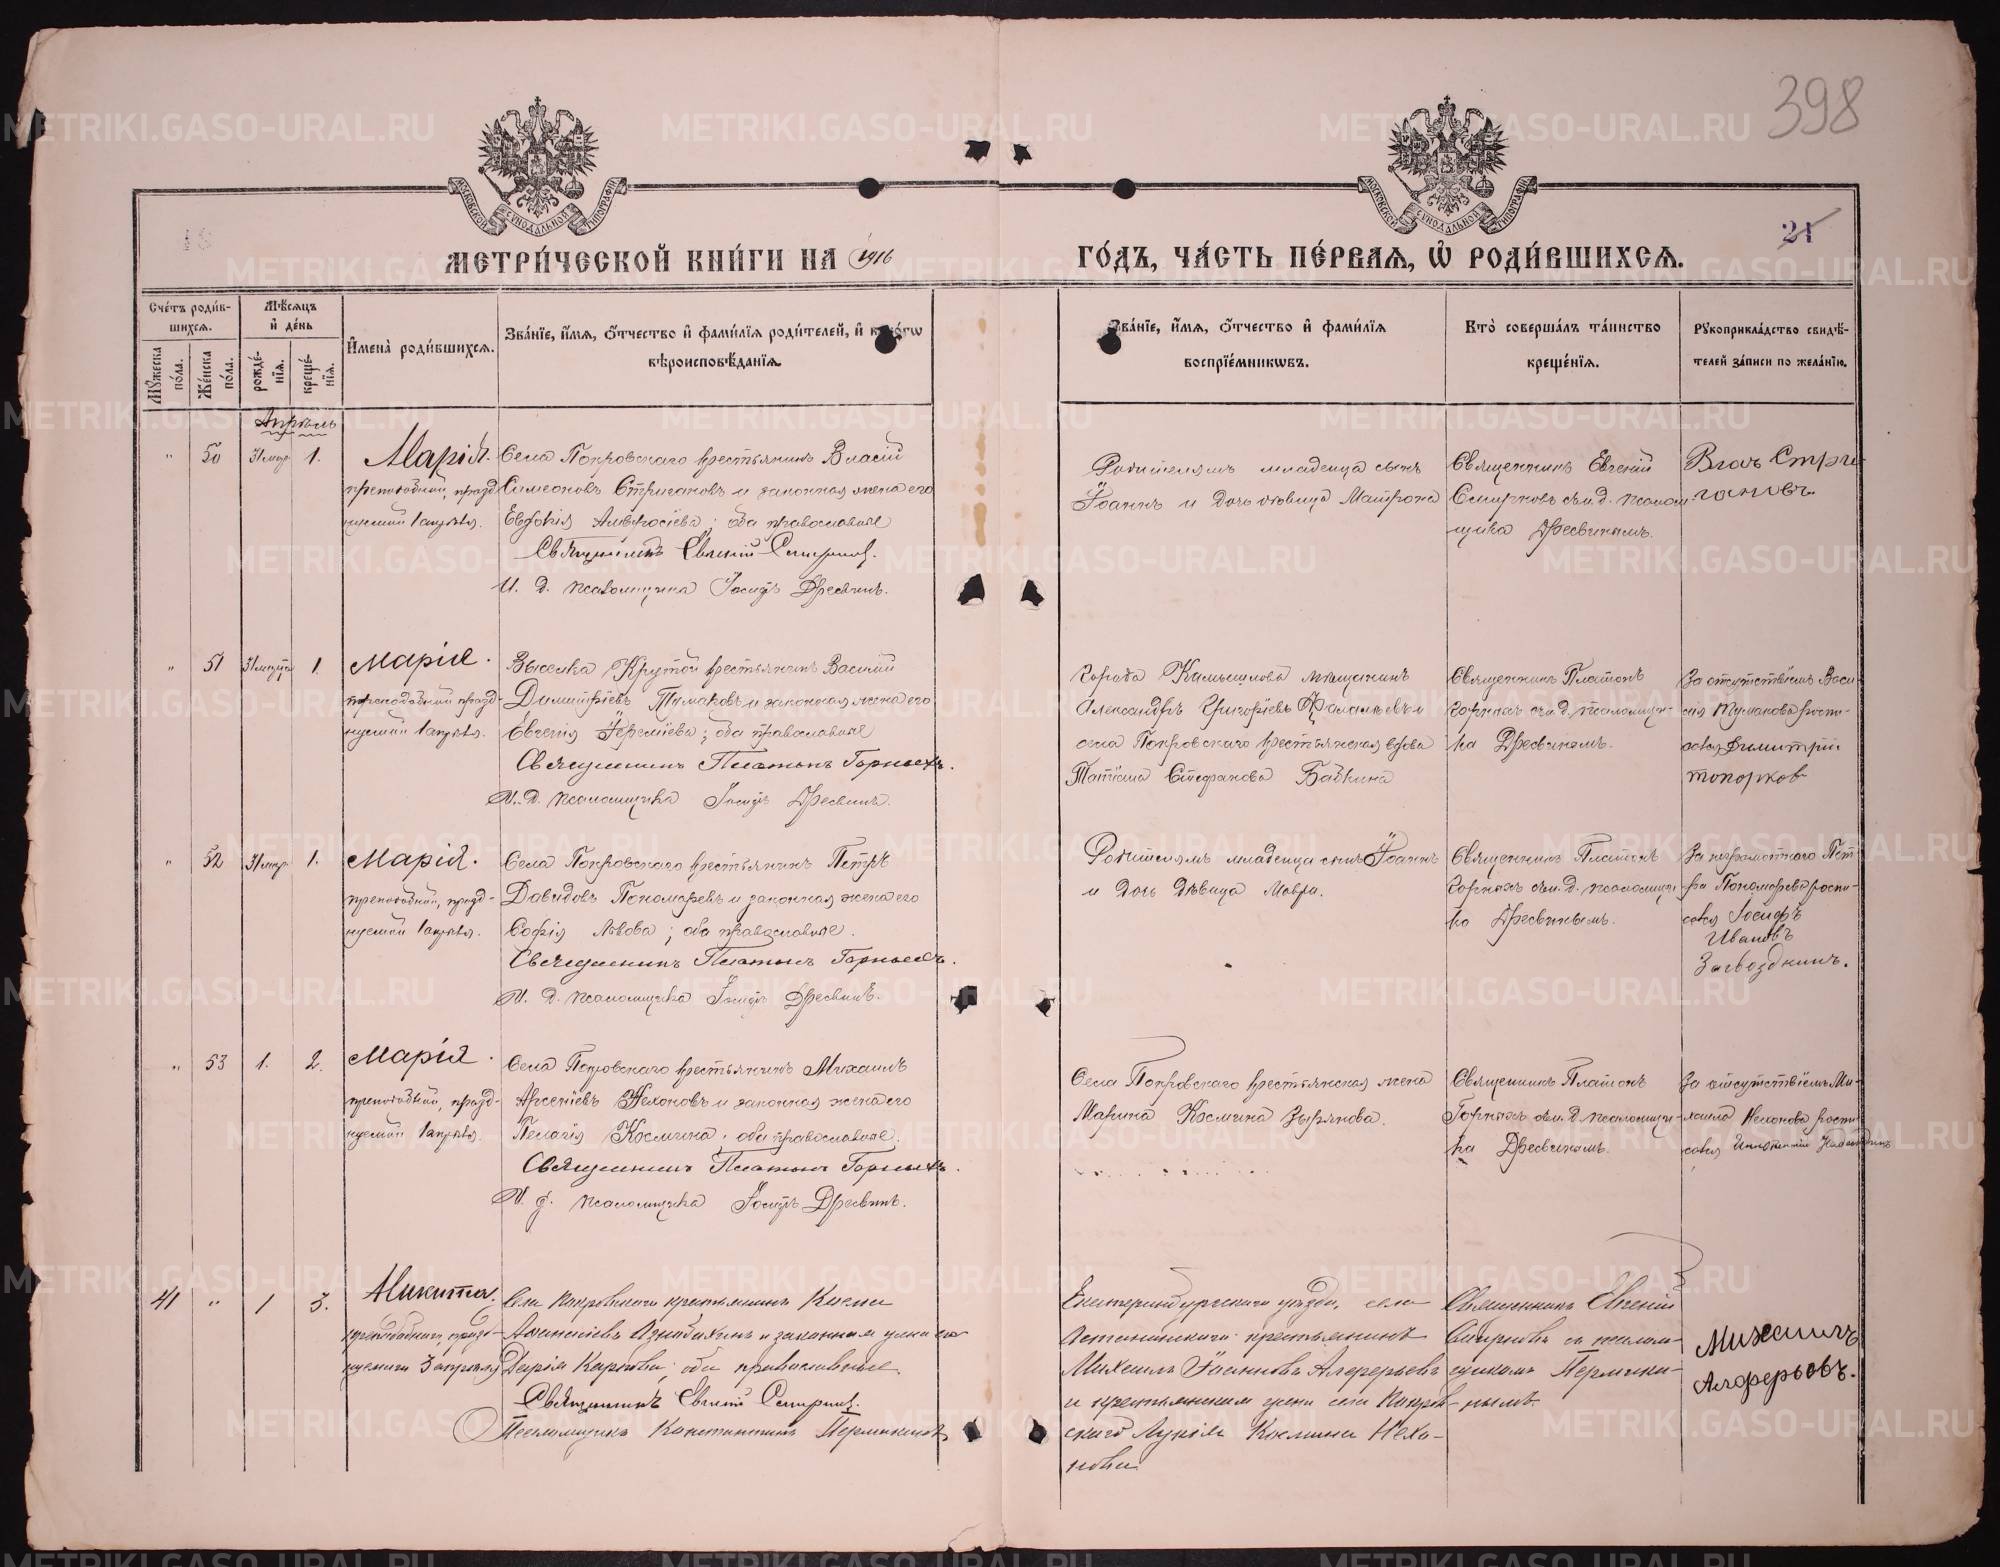 398
21
МЕТРИ́ЧЕСКОЙ КНИ́ГИ НА 1916
ГО́ДЪ, ЧА́СТЬ ПЕ́РВАЯ, Ѡ҆ РОДИ́ВШИХСЯ.
МОСКОВСКОЙ СѴНОДАЛЬНОЙ ТИПОГРАФІИ
МОСКОВСКОЙ СѴНОДАЛЬНОЙ ТИПОГРАФІИ
Сче́тъ роди́в-
шихся.
Мѣ́сяцъ
и҆ де́нь
Мꙋ́жеска по́ла.
Же́нска по́ла.
рожде́-
нїя.
креще́-
нїя.
И҆мена̀ роди́вшихся.
Зва́нїе, и҆́мя, ѻ҆́тчество и҆ фами́лїя роди́телей, и҆ како́гѡ
вѣроисповѣ́данїя.
Зва́нїе, и҆́мя, ѻ҆́тчество и҆ фами́лїя
воспрїе́мникѡвъ.
Кто̀ соверша́лъ та́инство
креще́нїя.
Рꙋкоприкла́дство свидѣ́-
телей за́писи по жела́нїю.
Апрѣль
" 50 31 мар. 1. Марія.
преподобной, празд
нуемой 1 апрѣля.
Села Покровскаго крестьянинъ Власій
Симеоновъ Стригановъ и законная жена его
Евдокія Амвросіева; оба православные
Священникъ Евгеній Смирновъ.
И. д. псаломщика Іосифъ Дресвинъ.
Родителямъ младенца сынъ
Іоаннъ и дочь дѣвица Матрона
Священникъ Евгеній
Смирновъ съ и. д. псалом
щика Дресвинымъ.
Власъ Стри-
гановъ.
" 51 31 марта 1. Марія.
преподобной празд-
нуемой 1 апрѣля.
Выселка Крутой крестьянинъ Василій
Димитріевъ Тумаковъ и законная жена его
Евгенія Іереміева; оба православные
Священникъ Платонъ Горныхъ.
И. д. псаломщика Іосифъ Дресвинъ.
Города Камышлова мѣщанинъ
Александръ Григоріевъ и
села Покровскаго крестьянская вдова
Татіана Стефанова Бабкина
Священникъ Платонъ
Горныхъ съ и. д. псаломщи-
ка Дресвинымъ.
За отсутствіемъ Васи-
лія Тумакова роспи-
сался Димитрій
Топорков
" 52 31 мар. 1. Марія.
преподобной, празд-
нуемой 1 апрѣля.
Села Покровскаго крестьянинъ Петръ
Давидовъ Пономаревъ и законная жена его
Софія Львова; оба православные.
Священникъ Платонъ Горныхъ.
И. д. псаломщика Іосифъ Дресвинъ.
Родителямъ младенца сынъ Іоаннъ
и дочь дѣвица Мавра.
Священникъ Платонъ
Горныхъ съ и. д. псаломщи
ка Дресвинымъ.
За неграмотнаго Пет-
ра Пономарева роспи-
сался Іосифъ
Ивановъ
Загвоздкинъ.
" 53 1. 2. Марія.
преподобной, празд-
нуемой 1 апрѣля.
Села Покровскаго крестьянинъ Михаилъ
Арсеніевъ Нехоновъ и законная жена его
Пелагія Космина; оба православные.
Священникъ Платонъ Горныхъ.
И. д. псаломщика Іосифъ Дресвинъ.
Села Покровскаго крестьянская жена
Марина Космина Зырянова.
Священникъ Платонъ
Горныхъ съ и. д. псаломщи-
ка Дресвинымъ.
За отсутствіемъ Ми-
хаила Нехонова роспи-
сался
41 " 1 3. Никита,
преподобнаго, празд-
нуемаго 3 апрѣля
Села Покровскаго крестьянинъ Косма
Аѳанасіевъ и законная жена его
Дарія Карпова; оба православные.
Священникъ Евгеній Смирновъ.
Псаломщикъ Константинъ Пермикинъ
Екатеринбургскаго уѣзда, села
крестьянинъ
Михаилъ Іоанновъ Алферьевъ
и крестьянская жена села Покров-
скаго Лукія Космина Нехо-
нова.
Священникъ Евгеній
Смирновъ съ псалом-
щикомъ Пермики-
нымъ.
Михаилъ
Алферьовъ.